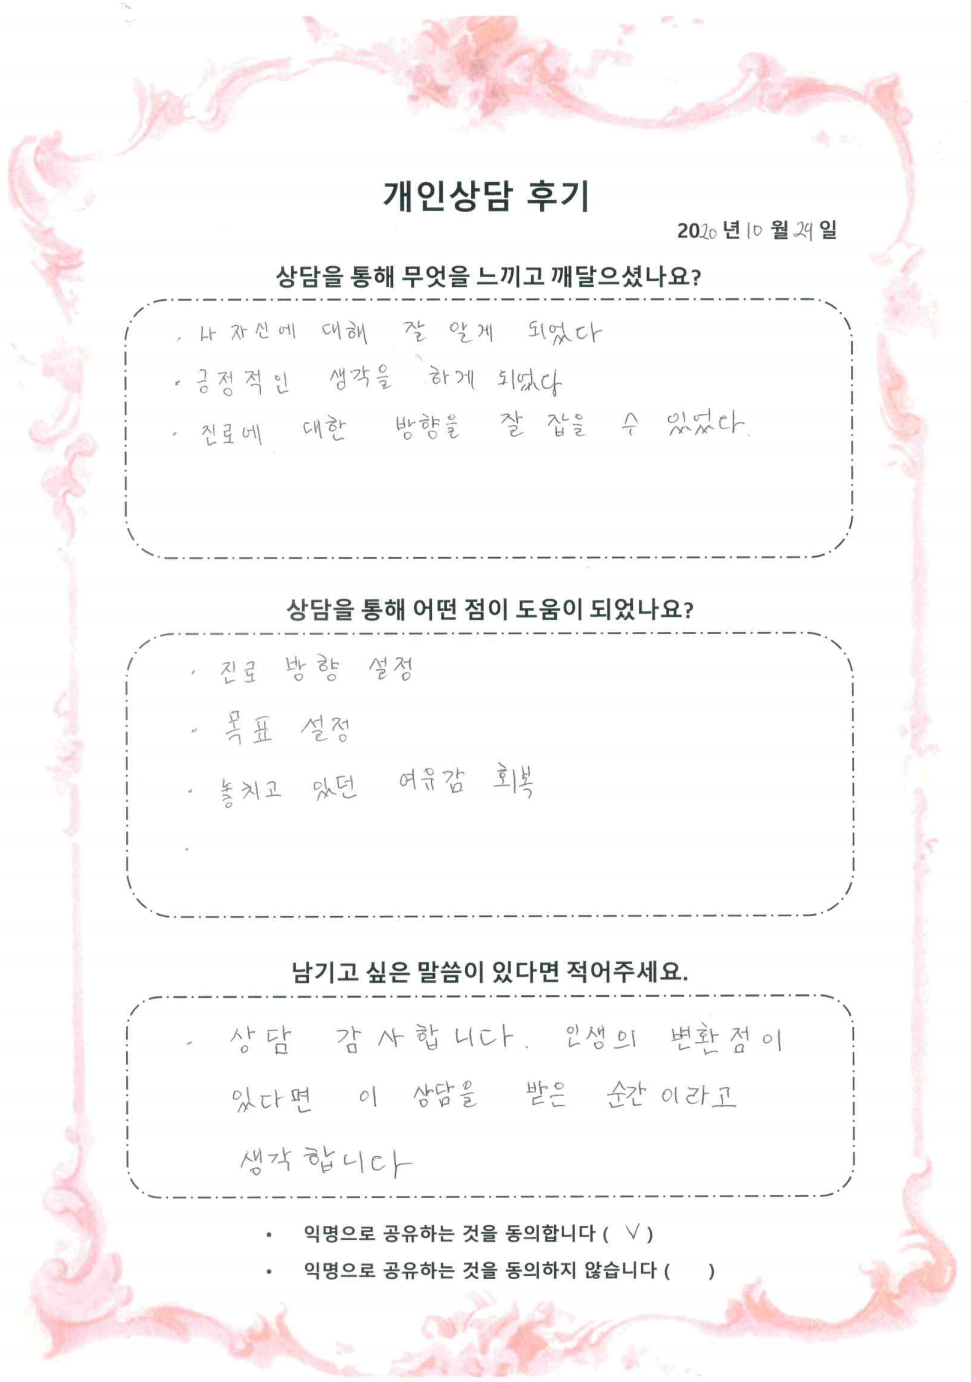 개인상담 후기
2020 년 10 월 29 일
상담을 통해 무엇을 느끼고 깨달으셨나요?
· 나 자신에 대해 잘 알게 되었다
· 긍정적인 생각을 하게 되었다
· 진로에 대한 방향을 잘 잡을 수 있었다.
상담을 통해 어떤 점이 도움이 되었나요?
· 진로 방향 설정
· 목표 설정
· 놓치고 있던 여유감 회복
·
남기고 싶은 말씀이 있다면 적어주세요.
· 상담 감사합니다. 인생의 변환점이
있다면 이 상담을 받은 순간이라고
생각합니다
• 익명으로 공유하는 것을 동의합니다 ( V )
• 익명으로 공유하는 것을 동의하지 않습니다 ( )